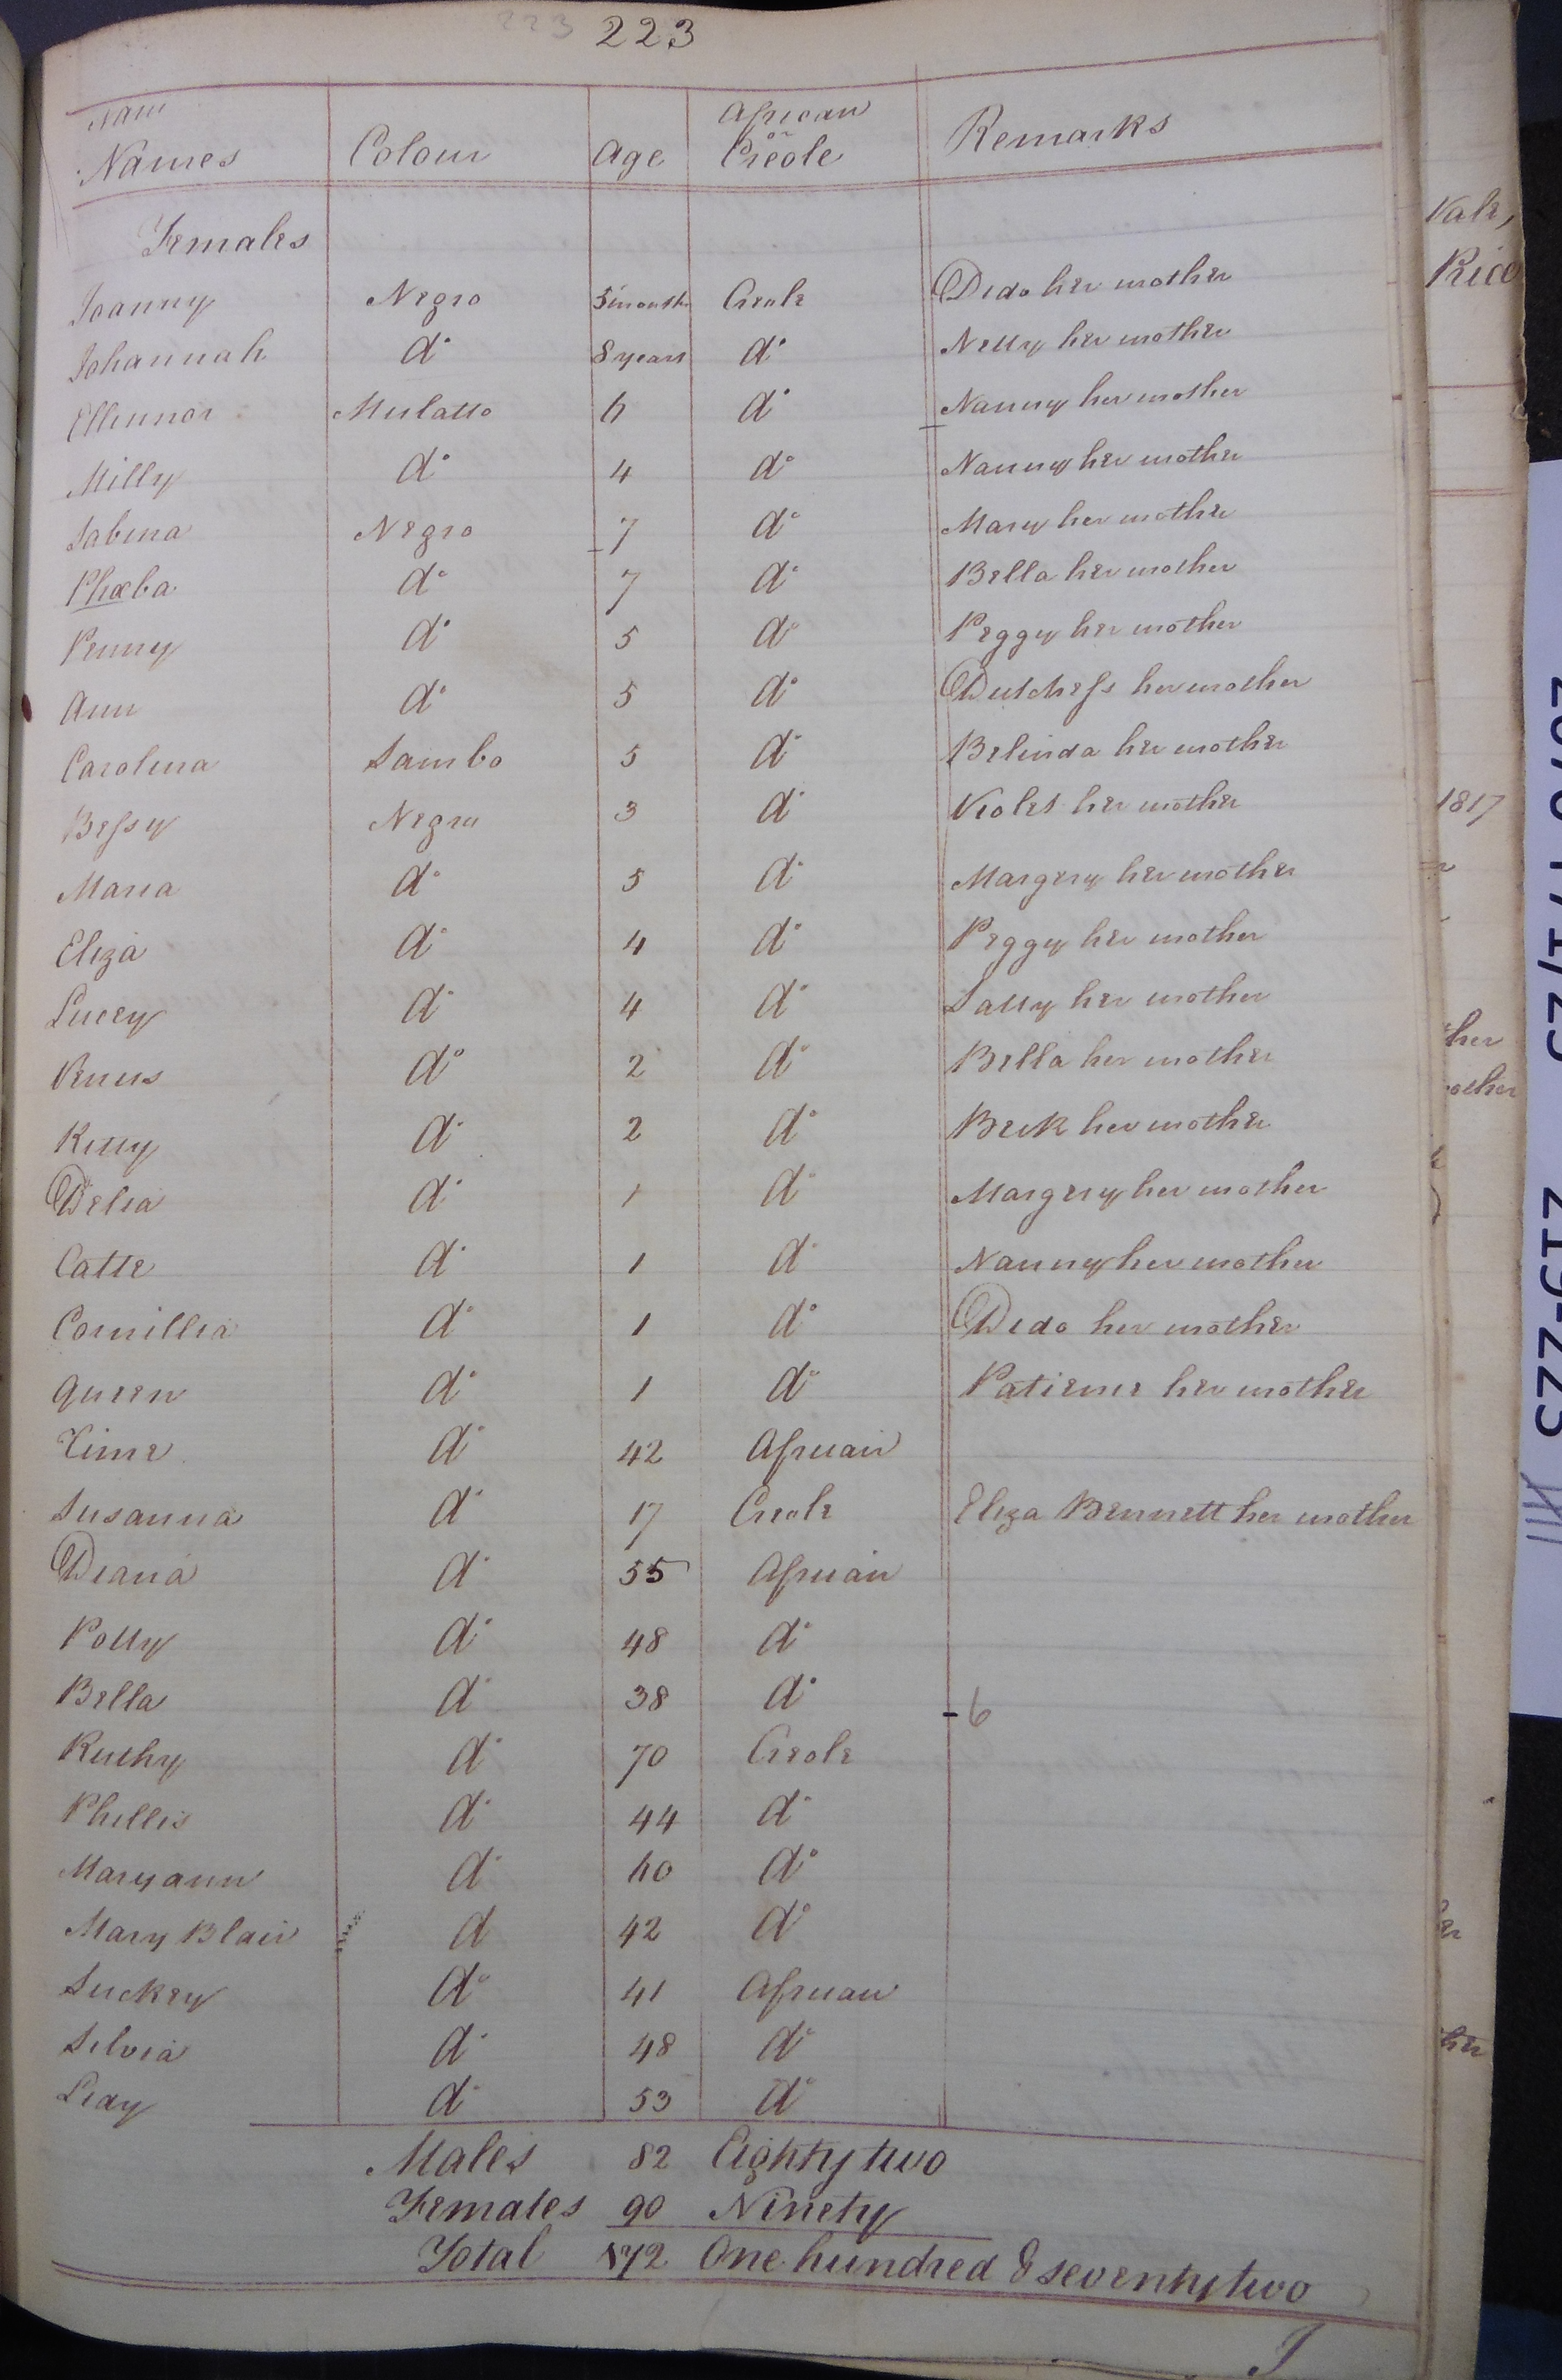 223 223
Names Colour Age African or Creole Remarks
Females
Joanny Negro 5 months Creole Dido her mother
Johannah do 8 years do Nelly her mother
Ellinnor Mulatto 6 do Nanny her mother
Milly do 4 do Nanny her mother
Sabina Negro 7 do Mary her mother
Phœba do 7 do Bella her mother
Penny do 5 do Peggy her mother
Ann do 5 do Dutchess her mother
Carolina Sambo 5 do Belinda her mother
Bessy Negro 3 do Violet her mother
Maria do 5 do Margery her mother
Eliza do 4 do Peggy her mother
Lucey do 4 do Sally her mother
Venus do 2 do Bella her mother
Kitty do 2 do Beck her mother
Delia do 1 do Margery her mother
Catte do 1 do Nanny her mother
Cornillia do 1 do Dido her mother
Queen do 1 do Patience her mother
do 42 African
Susanna do 17 Creole Eliza Bennett her mother
Diana do 55 African
Polly do 48 do
Bella do 38 do - 6
Ruthy do 70 Creole
Phillis do 44 do
Maryann do 60 do
Mary Blair d 42 do
Suckey do 41 African
Silvia do 48 do
do 53 do
Males 82 Eighty two
Females 90 Ninety
Total 172 One hundred & seventy two
Vale,
Rice
1817
ther
other
her
219-223